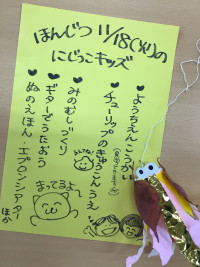 ほんじつ 11/18(火)の
にじっこキッズ
♥ようちえんこうかい
♥チューリップのきゅうこんうえ
♥みのむしづくり
♥ギターでうたおう
♥ぬのえほん・エプロンシアター
ほか
まってるよ〜